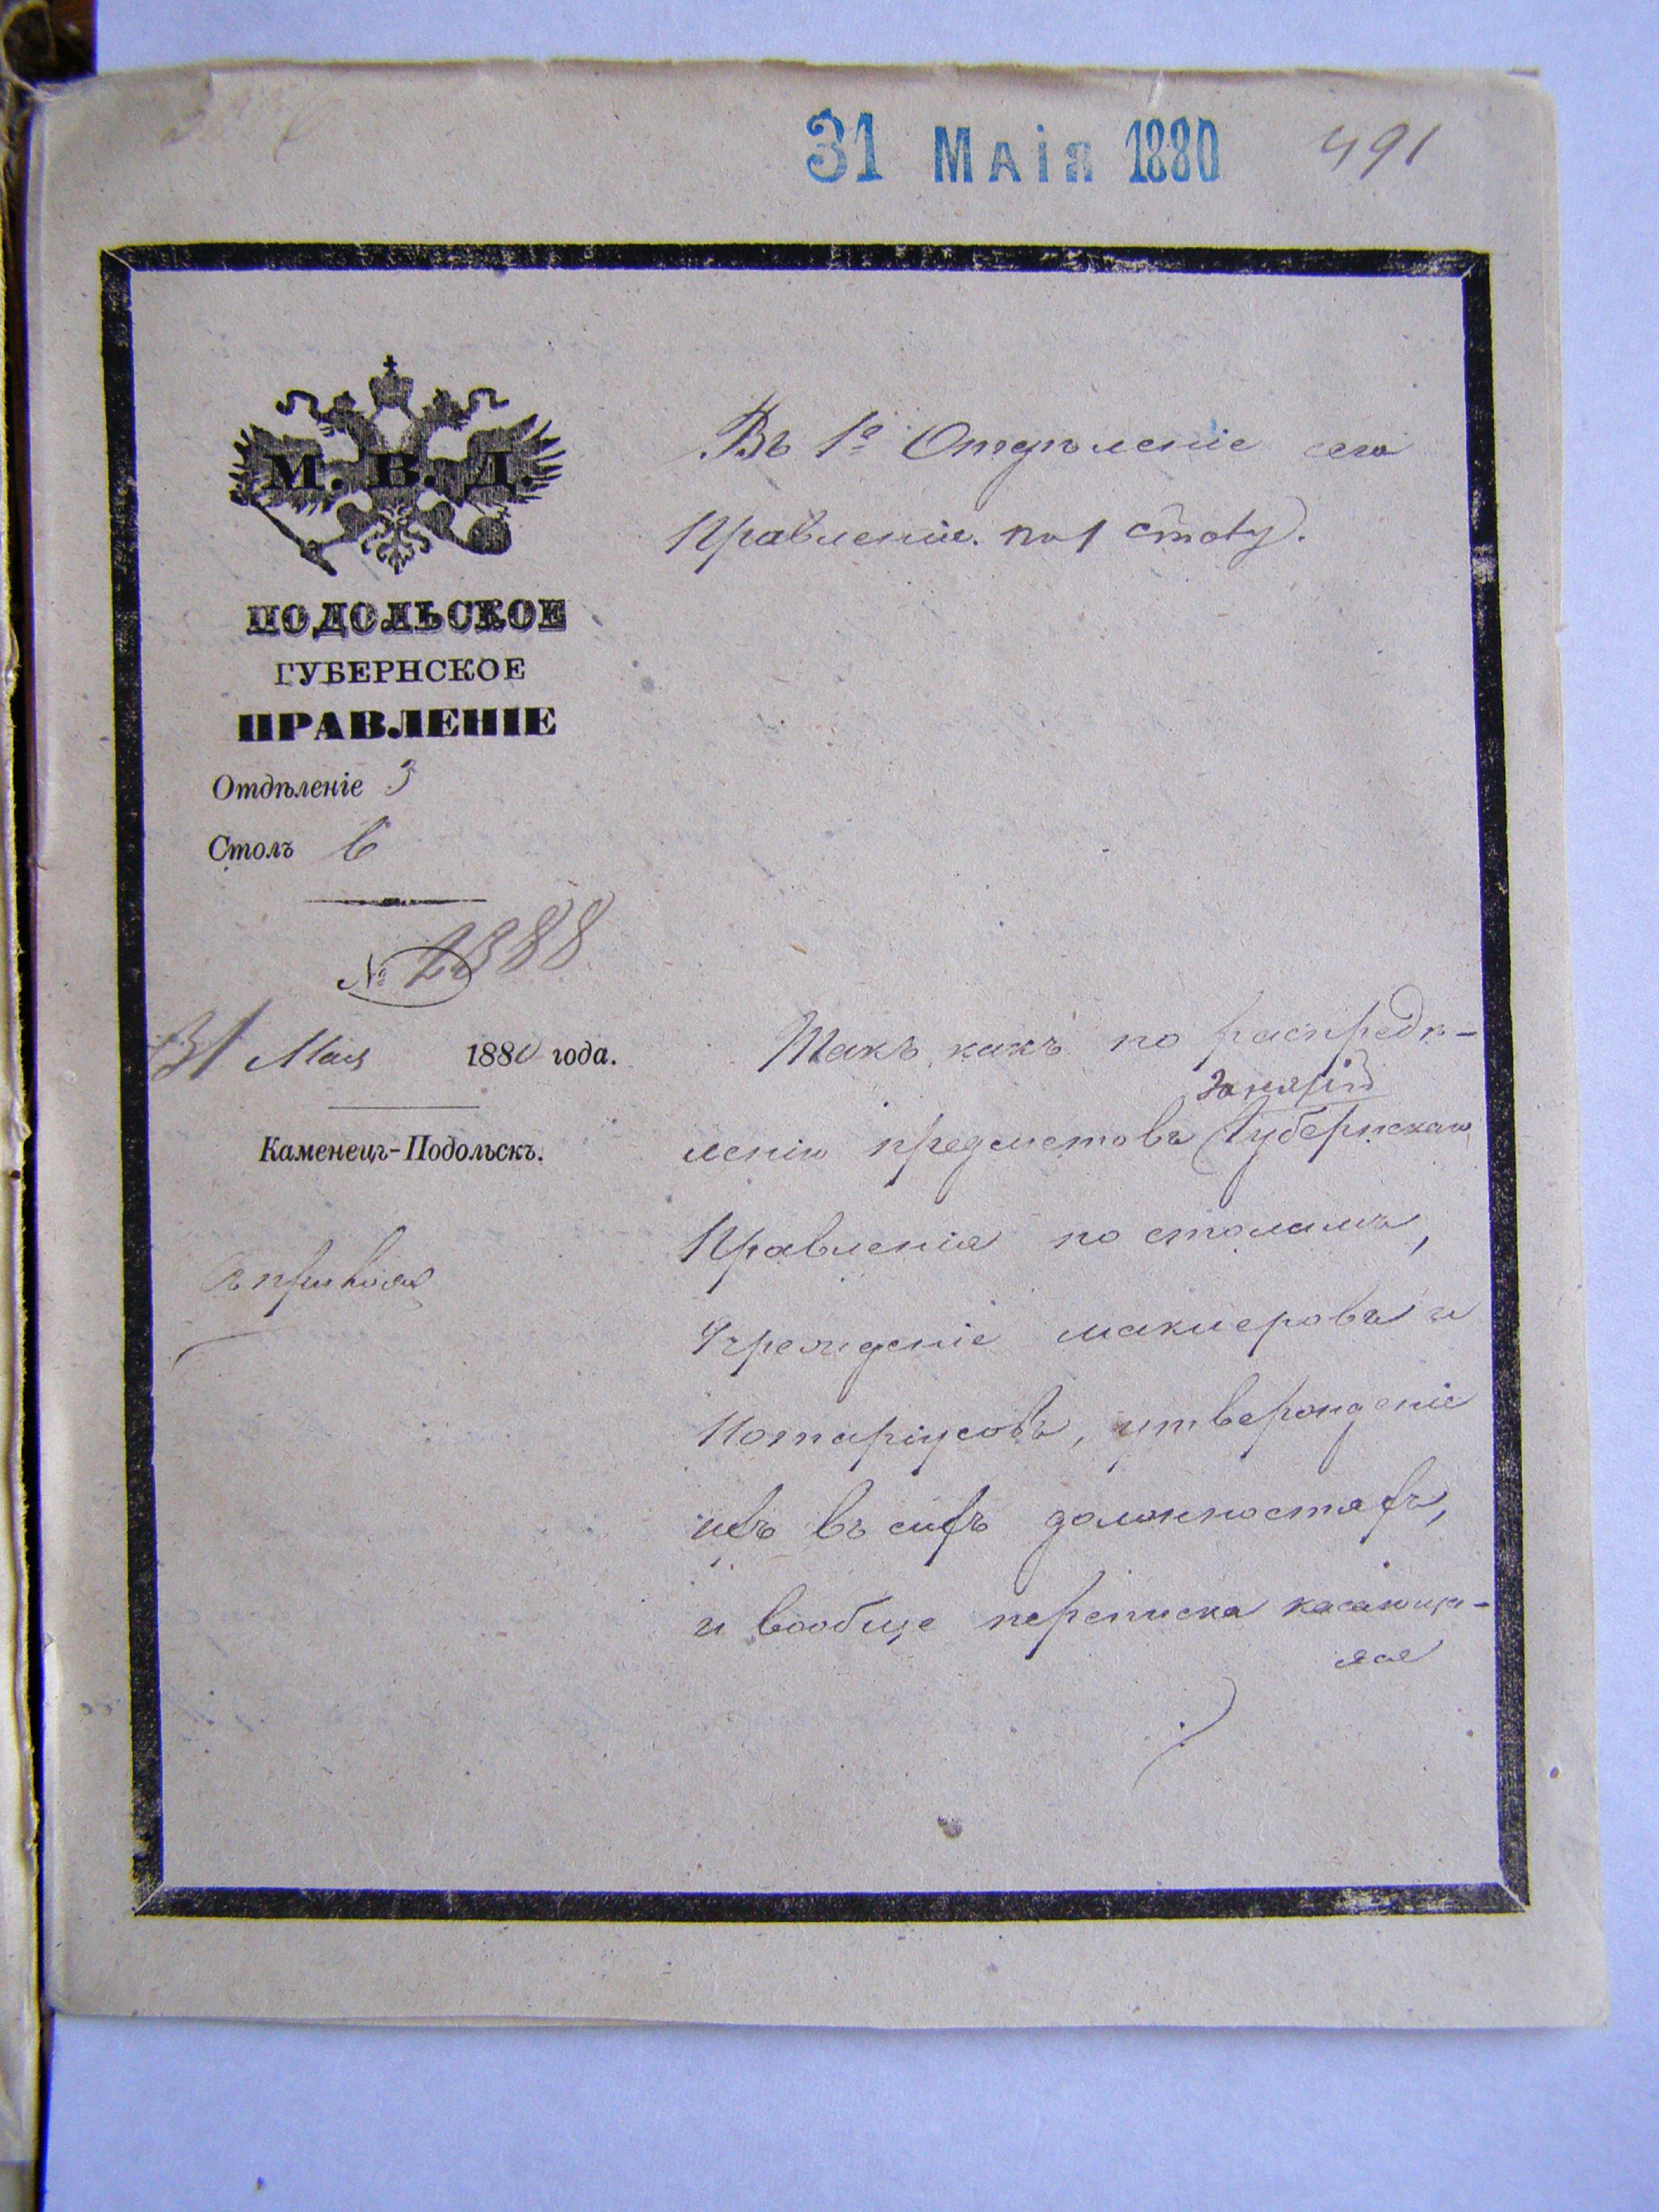 31 МАІЯ 1880
491
М. В. Д.
ПОДОЛЬСКОЕ
ГУБЕРНСКОЕ
ПРАВЛЕНІЕ
Отдѣленіе 3
Столъ 6
№ 2888
31 Мая 1880 года.
Каменецъ-Подольскъ.
Въ 1е Отдѣленіе сего
Правленія. по 1 столу.
Такъ какъ по распредѣ-
занятій
ленію предметовъ Губернскаго
Правленія по столамъ,
Учрежденіе маклеровъ и
Нотаріусовъ, утвержденіе
ихъ въ сихъ должностяхъ,
и вообще переписка касающа-
яся